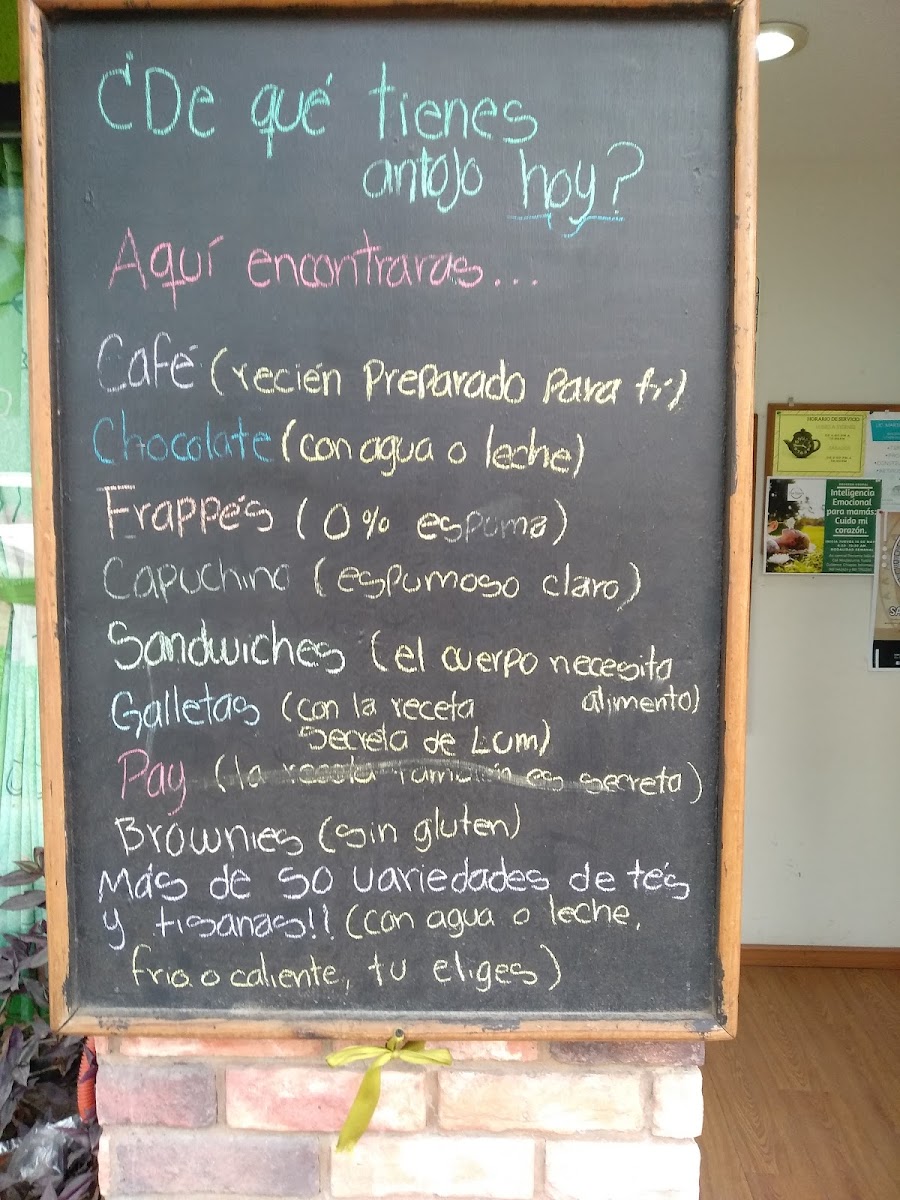 ¿De qué tienes
antojo hoy?
Aquí encontraras...
Café (recién Preparado Para ti)
Chocolate (con agua o leche)
Frappés (0% espuma)
Capuchino (espumoso claro)
Sandwiches (el cuerpo necesita
alimento)
Galletas (con la receta
Secreta de Lum)
Pay (la receta también es secreta)
Brownies (sin gluten)
Más de 50 variedades de tés
y tisanas!! (con agua o leche,
fria o caliente, tu eliges)
HORARIO DE SERVICIO
Inteligencia
Emocional
para mamás:
Cuido mi
corazón.